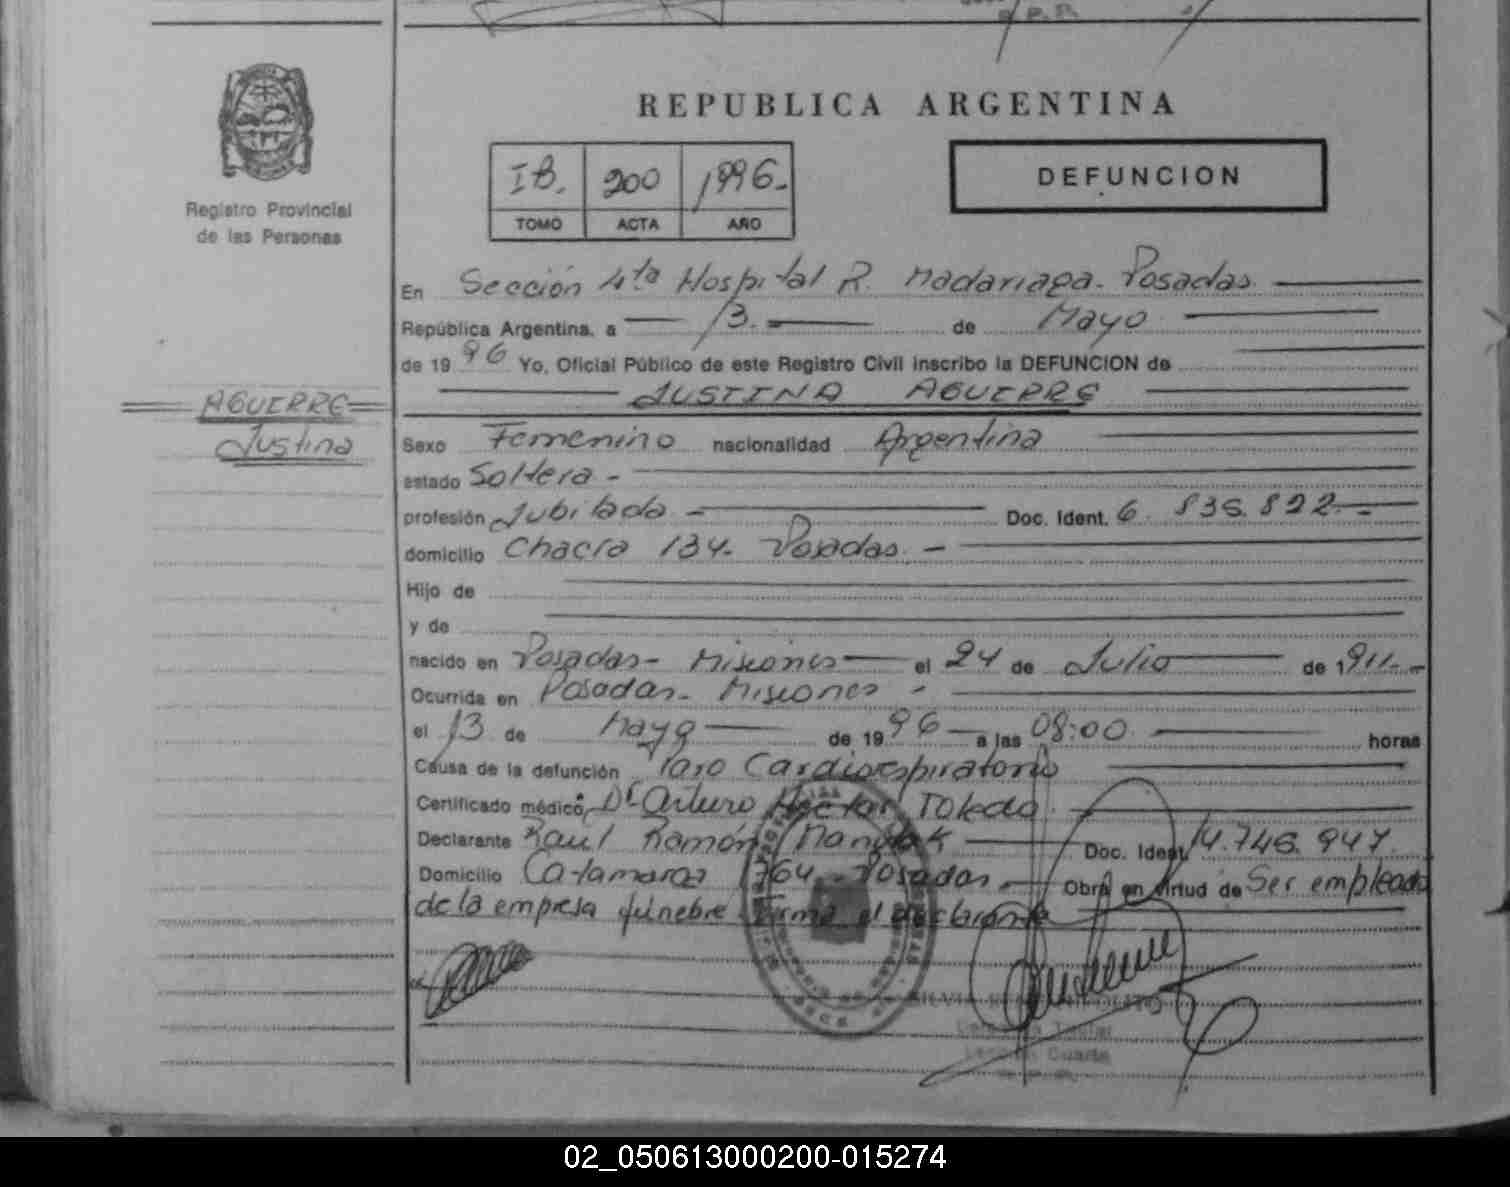 REPUBLICA ARGENTINA
IB. 200 1996.-
TOMO ACTA AÑO
DEFUNCION
Registro Provincial
de las Personas
En Sección 4ta Hospital R. Madariaga - Posadas
República Argentina, a 13 de Mayo
de 1996 Yo, Oficial Público de este Registro Civil inscribo la DEFUNCION de
JUSTINA AGUERRE
AGUERRE
Justina
Sexo Femenino nacionalidad Argentina
estado Soltera -
profesión Jubilada - Doc. Ident. 6.836.822.-
domicilio Chacra 134 - Posadas. -
Hijo de
y de
nacido en Posadas - Misiones el 24 de Julio de 1911.-
Ocurrida en Posadas - Misiones -
el 13 de Mayo de 1996 a las 08:00 horas
Causa de la defunción Paro Cardiorespiratorio
Certificado médico Dr Arturo Hector Toledo
Declarante Raúl Ramón Doc. Ident. 14.746.947
Domicilio Catamarca 1764 - Posadas - Obra en virtud de Ser empleado
de la empresa fúnebre firma el declarante
02_050613000200-015274